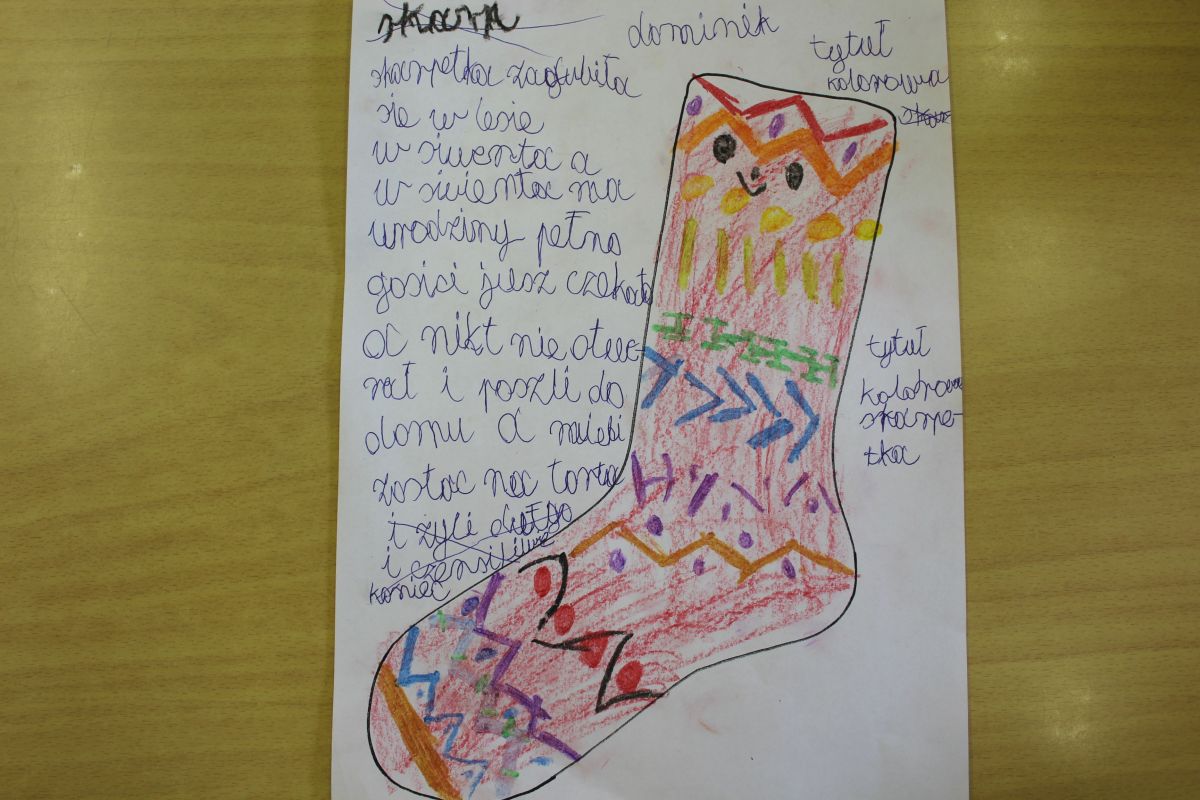 skarp
dominik
tytuł
kolorowa
skar
skarpetka zagubiła
sie w lesie
w świenta a
w świenta ma
urodziny pełno
gosici jusz czekało
a nikt nie otwie-
rał i poszli do
domu a mieli
zostac na torta
i żyli długo
i czensiliwe
koniec
tytuł
kolorowa
skarpe-
tka